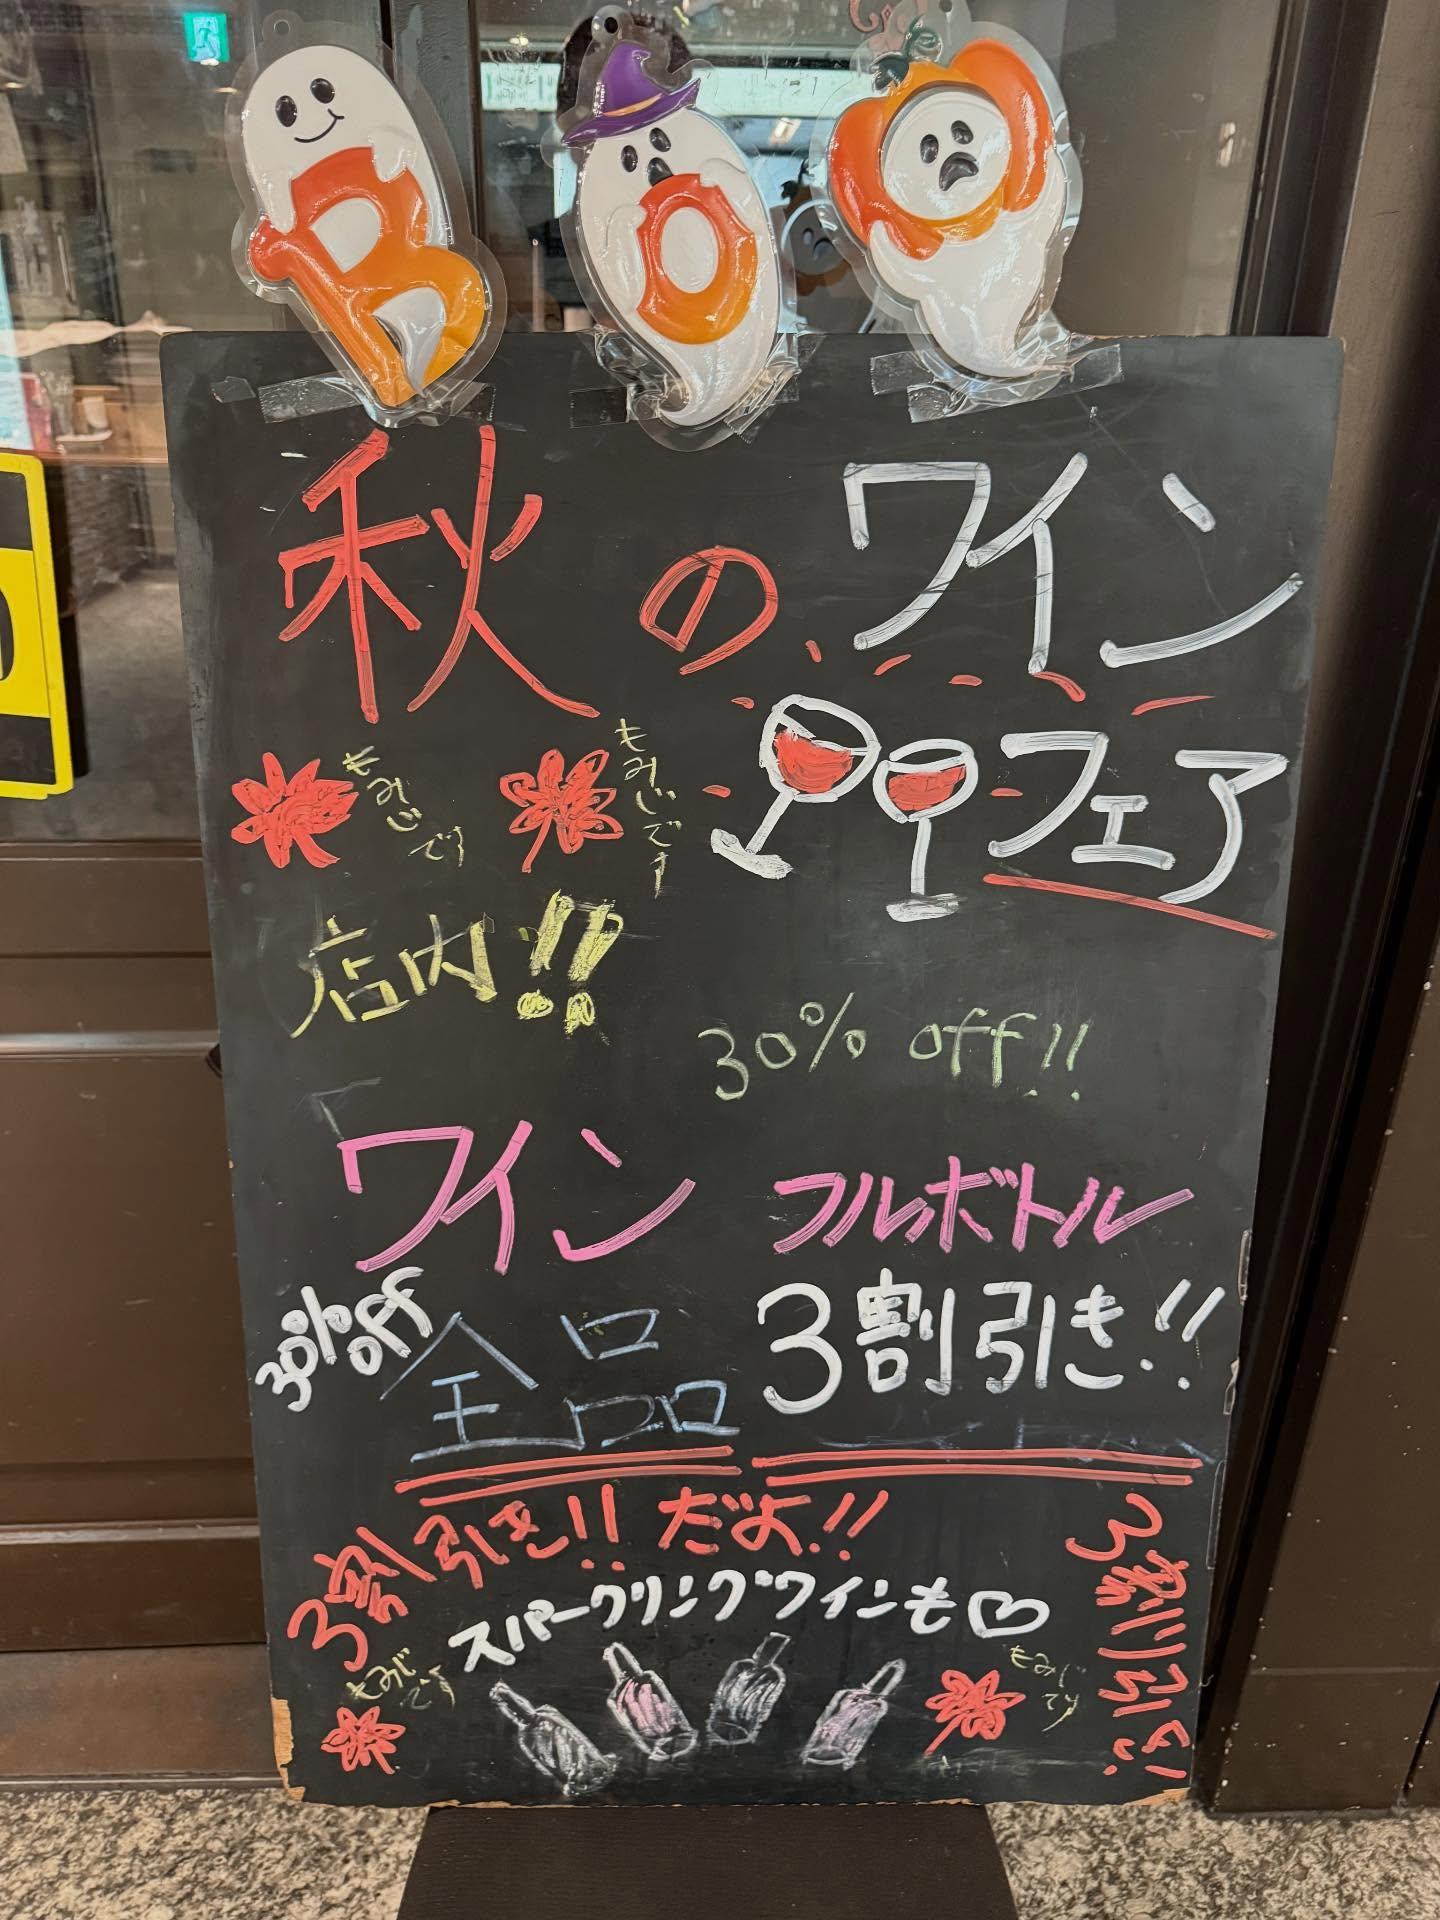 BOO
秋のワイン
フェア
もみじです
もみじです
店内!!
30% off!!
ワイン フルボトル
30% off
全品 3割引き!!
3割引き!! だよ!!
3割引き!!
スパークリングワインも
もみじです
もみじです